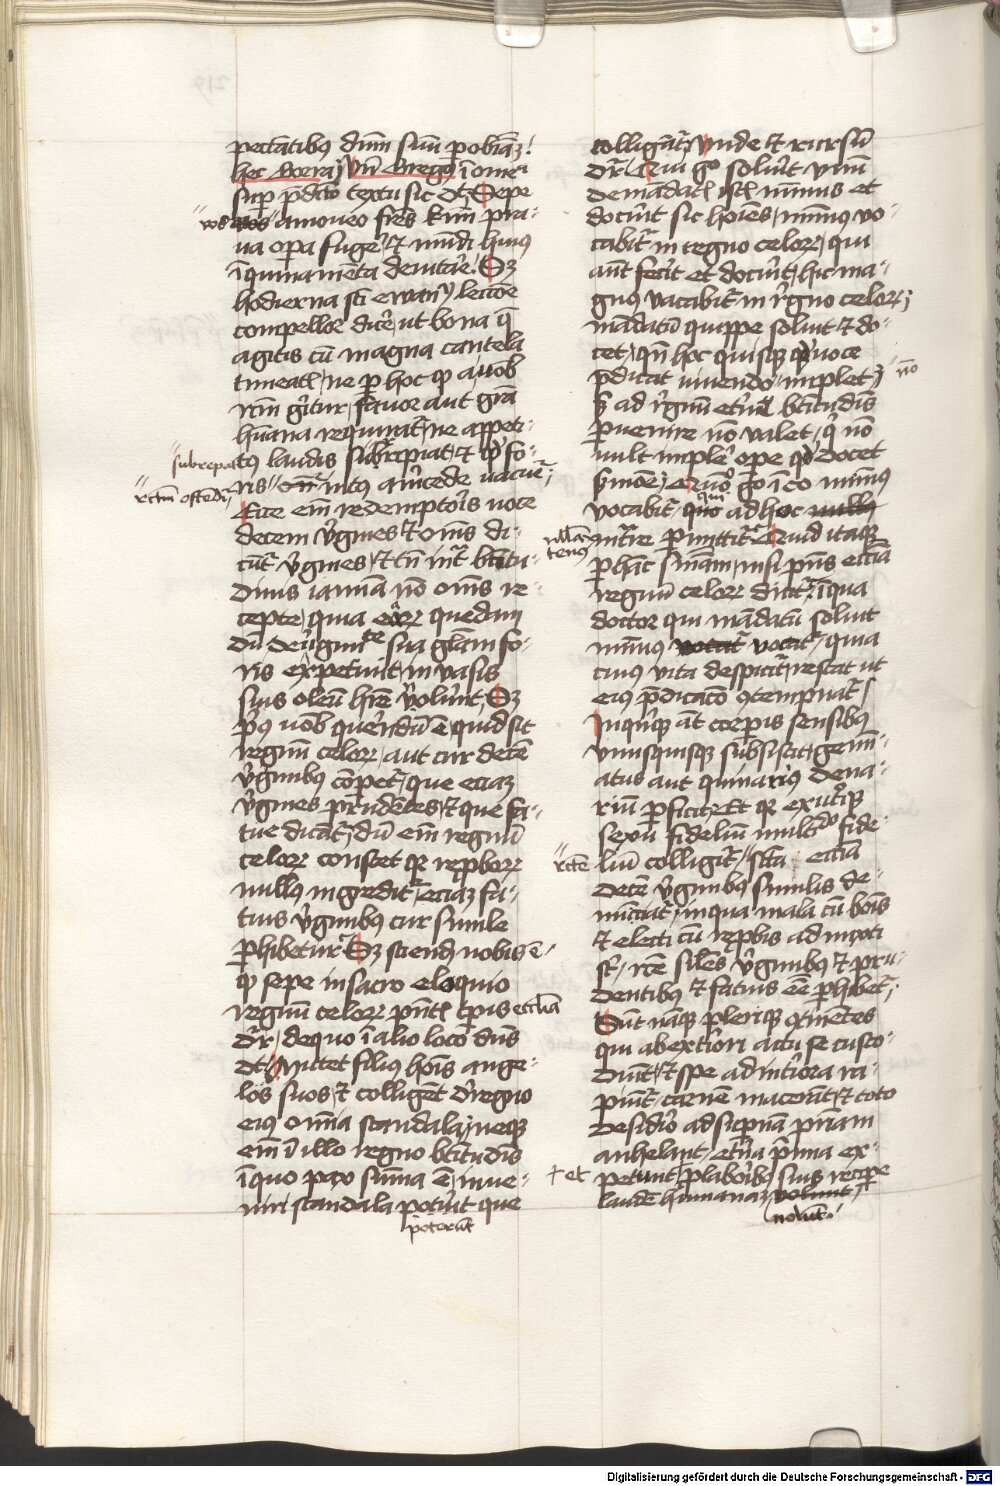 peccatibus dum suum per obiam
hec Beda Unde Gregorius in omeli
super predicto textu sic dicit Sepe
vos amoneo fratres karissimi pra-
ua opera fugere et mundi huius
inquinamenta deuitare Sed
hodierna sancti ewangelii leccione
compellor dicere ut bona que
agitis cum magna cautela
timeatis ne per hoc quod a uobis
rectum geritur fauor aut gratia
humana requiratur ne appeti-
subrepat
tus laudis subrepiat et quod fo-
rectum ostenditur
ris intus a mercede uacuetur
Ecce enim redemptoris uoce
decem virgines et omnes di-
cuntur virgines et tamen intra beatitu-
dinis ianuam non omnes re-
cepte quia earum quedam
dum de virginitate sua gloriam fo-
ris expetiuit in vasis
suis oleum habere noluerunt Sed
prius nobis querendum est quid sit
regnum celorum aut cur decem
virginibus comparetur que eciam
virgines prudentes et que fa-
tue dicantur dum enim regnum
celorum constet quod reproborum
nullus ingreditur eciam fa-
tuis virginibus cur simile
perhibetur Sed sciendum nobis est
quod sepe in sacro eloquio
regnum celorum presentis temporis ecclesia
dicitur de quo in alio loco dominus
dicit Mittet filius hominis ange-
los suos et colligent de regno
eius omnia scandala neque
enim in illo regno beatitudinis
in quo pax summa est inue-
niri scandala poterunt que
poterunt
colligantur Unde et rursum
dicitur Qui ergo soluerit unum
de mandatis istis minimis et
docuerit sic homines minimus vo-
cabitur in regno celorum qui
autem fecerit et docuerit hic ma-
gnus vocabitur in regno celorum
mandatum quippe soluit et do-
cet quando hoc quisque quod uoce
predicat uiuendo non implet
sed ad regnum eterne beatitudinis
peruenire non valet qui non
vult implere opere quod docet
sermone Quomodo ergo in eo minimus
vocabitur qui ad hoc
nullatenus
intrare permittitur Quid itaque
per hanc sententiam nisi presens ecclesia
regnum celorum dicitur in qua
doctor qui mandatum soluit
minimus vocatur quia
cuius vita despicitur restat ut
eius predicacio contempnatur
In quinque autem corporis sensibus
vnusquisque subsistit gemin-
atus aut quinarius dena-
rium perficit Et quia ex utroque
sexu fidelium multitudo
colligitur sancta ecclesia
decem virginibus similis de-
nunciatur in qua mala cum bonis
et electi cum reprobis admixti
sunt recte similis virginibus et pru-
dentibus et fatuis esse perhibetur
Sunt namque plerique continentes
qui ab exteriori actu se custo-
diunt et spe ad interiora ra-
piuntur carnem macerant et toto
desiderio ad supernam patriam
anhelant eterna premia ex-
et petunt pro laboribus suis recipere
laudem humanam volunt
nolunt